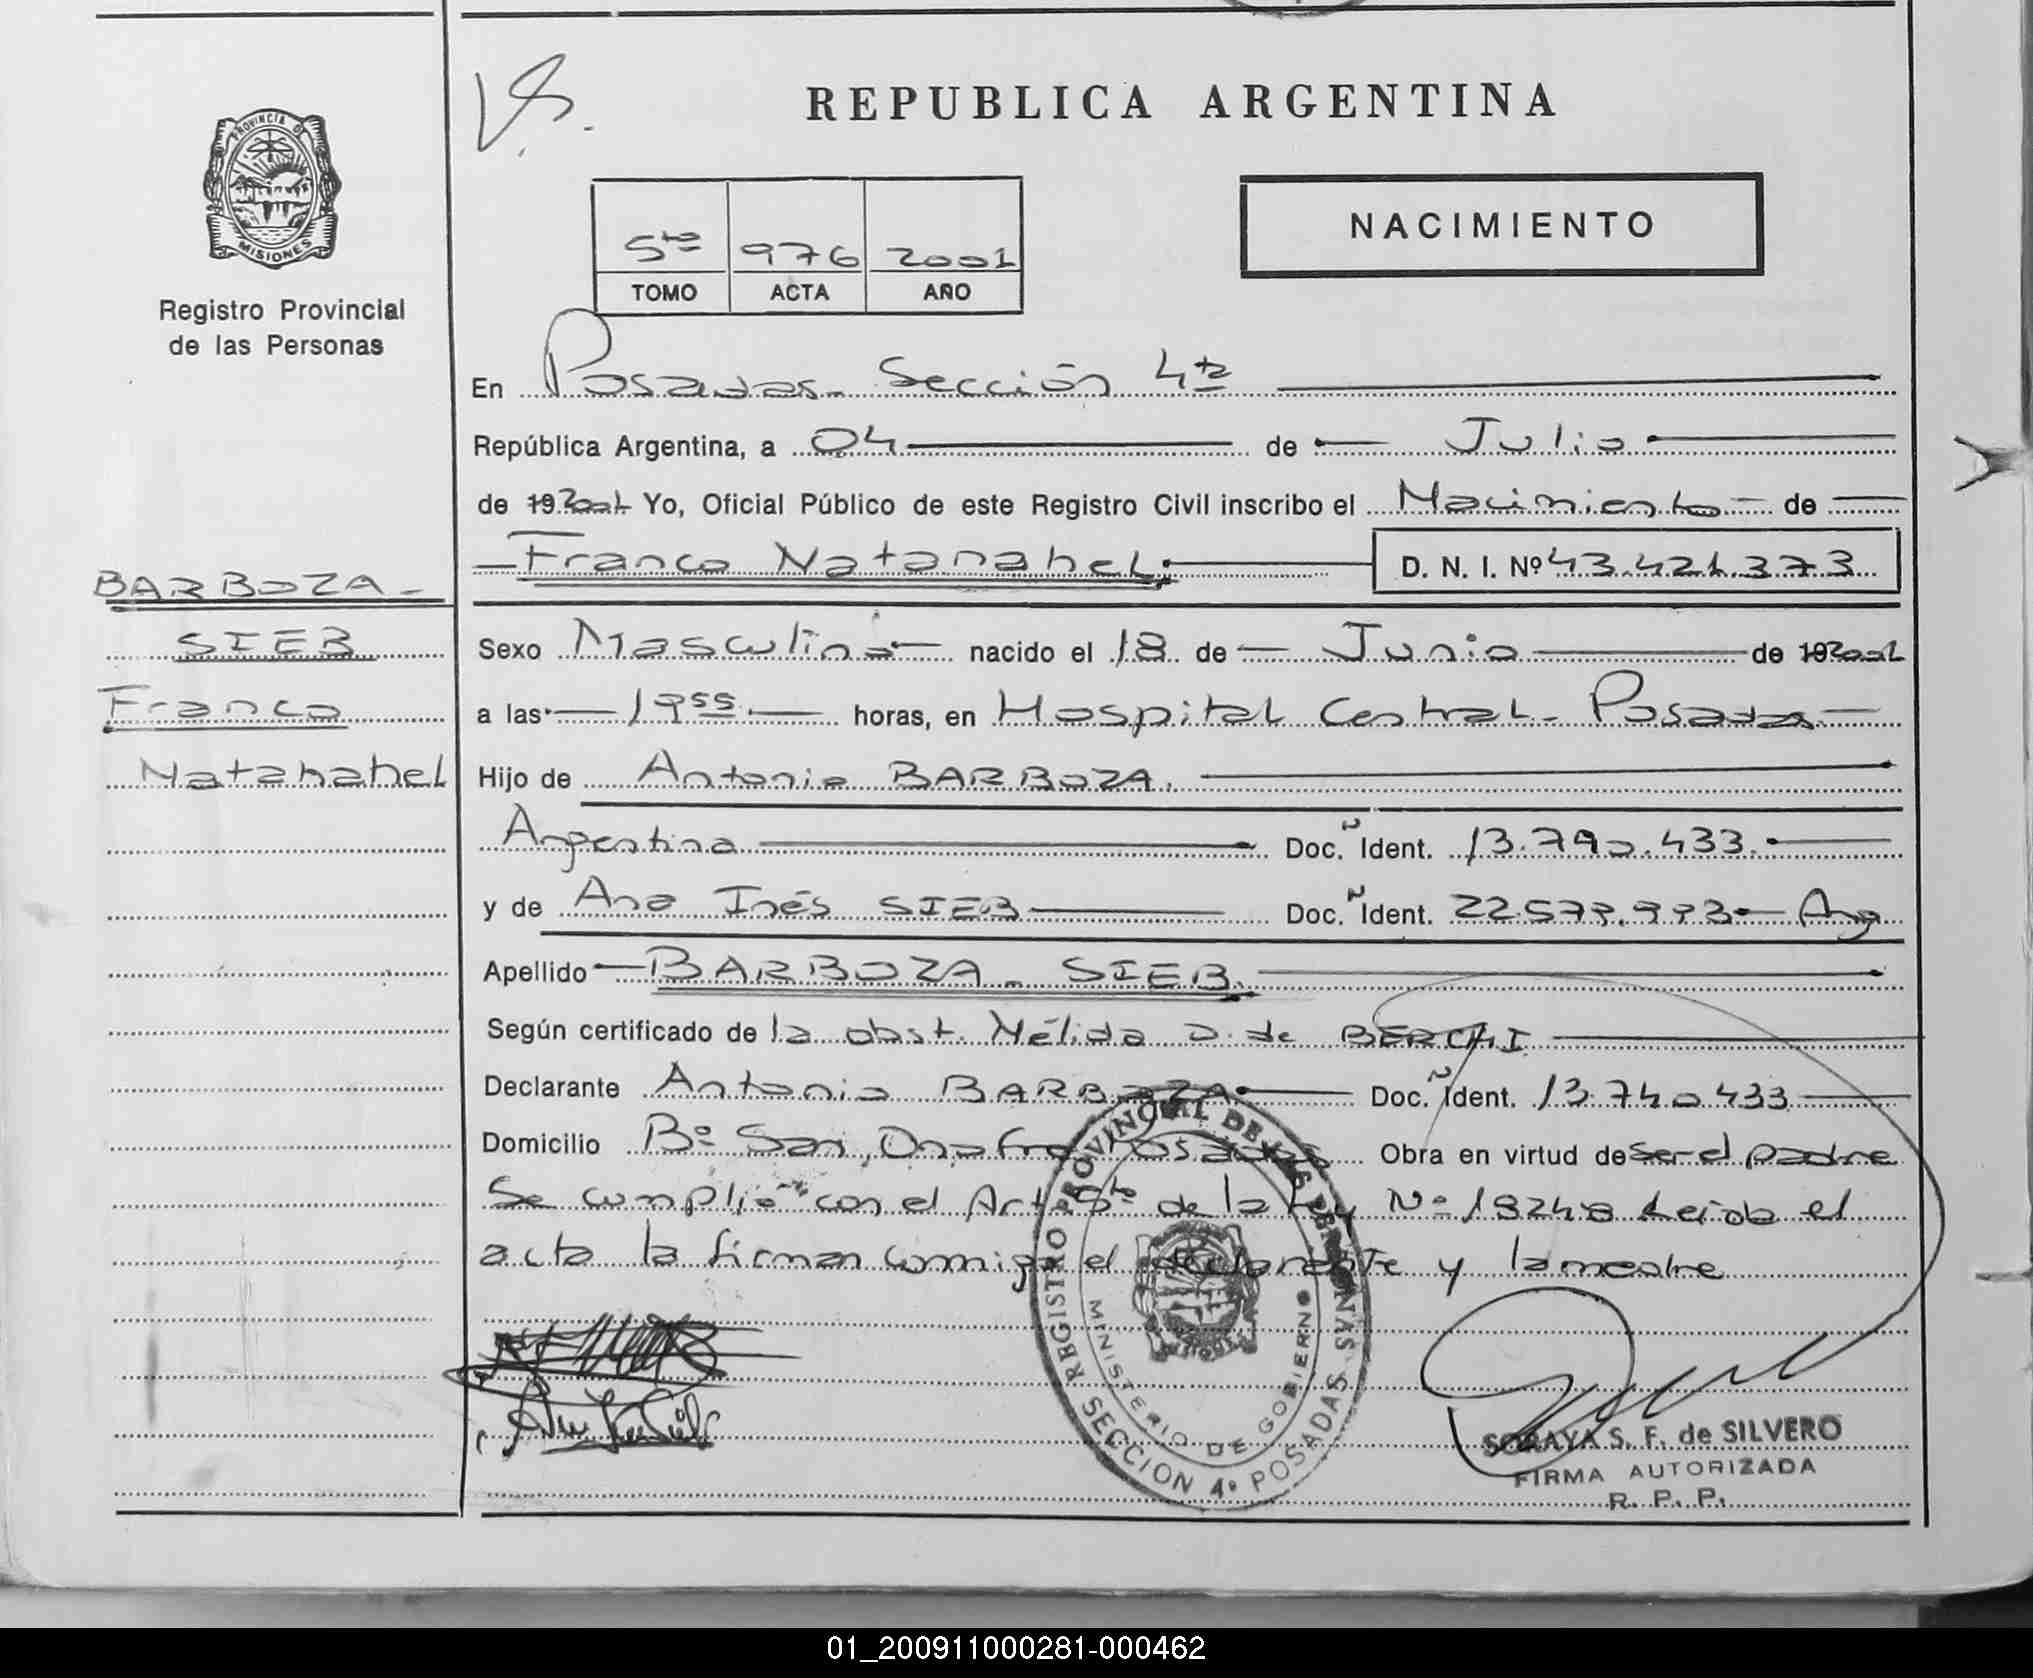 REPUBLICA ARGENTINA
PROVINCIA DE
MISIONES
Registro Provincial
de las Personas
5to 976 2001
TOMO ACTA AÑO
NACIMIENTO
En Posadas - Sección 4ta
República Argentina, a 04 de Julio
de 19 2001 Yo, Oficial Público de este Registro Civil inscribo el Nacimiento de
Franco Natanahel. D. N. I. Nº 43.421.373
BARBOZA -
SIEB
Franco
Natanahel
Sexo Masculino nacido el 18 de Junio de 19 2001
a las 19 55 horas, en Hospital Central - Posadas
Hijo de Antonio BARBOZA.
Argentina Doc. Ident. 13.740.433.
y de Ana Inés SIEB Doc. Ident. Arg
Apellido BARBOZA - SIEB.
Según certificado de la obst. Nélida D. de BERCHI
Declarante Antonio BARBOZA Doc. Ident. 13.740.433
Domicilio Bº San Onofre Posadas Obra en virtud de ser el padre
Se cumplió con el Art 5to de la Ley Nº 18248 Leida el
acta la firman conmigo el declarante y la madre
REGISTRO PROVINCIAL DE LAS PERSONAS
MINISTERIO DE GOBIERNO
SECCION 4º POSADAS
SORAYA S. F. de SILVERO
FIRMA AUTORIZADA
R. P. P.
01_200911000281-000462